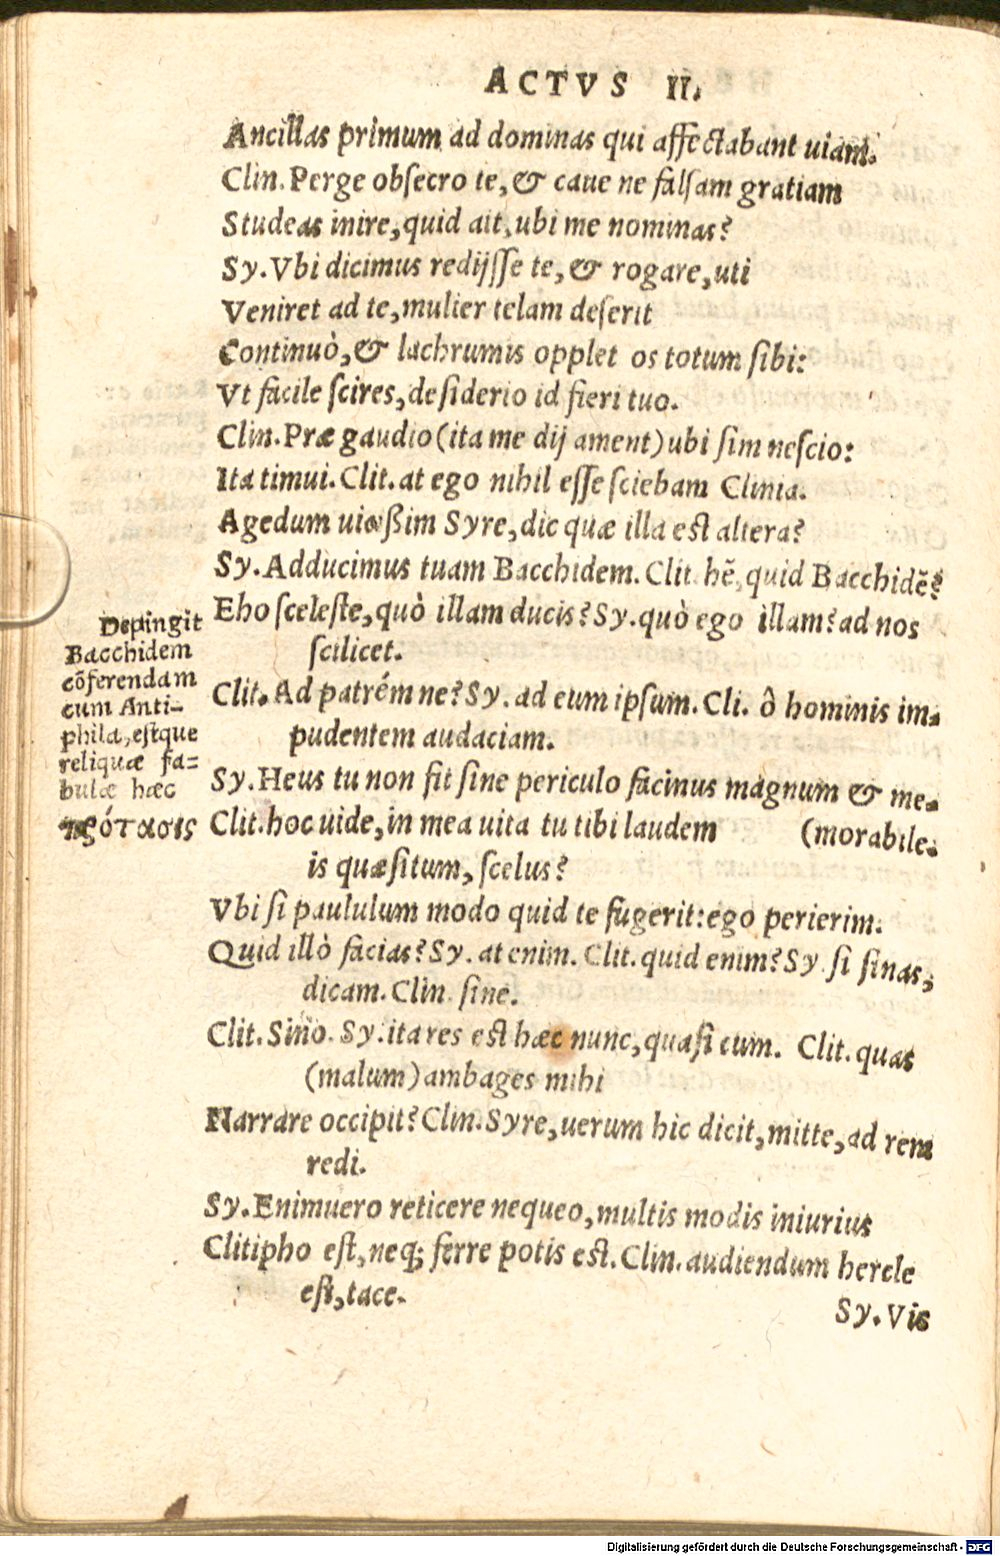 ACTVS II.
Ancillas primum ad dominas qui affectabant uiam.
Clin. Perge obsecro te, & caue ne falsam gratiam
Studeas inire, quid ait, ubi me nominas?
Sy. Vbi dicimus redijsse te, & rogare, uti
Veniret ad te, mulier telam deserit
Continuò, & lachrumis opplet os totum sibi:
Vt facile scires, desiderio id fieri tuo.
Clin. Præ gaudio (ita me dij ament) ubi sim nescio:
Ita timui. Clit. at ego nihil esse sciebam Clinia.
Agedum uicißim Syre, dic quæ illa est altera?
Sy. Adducimus tuam Bacchidem. Clit. hẽ, quid Bacchidẽ?
Eho sceleste, quò illam ducis? Sy. quò ego illam? ad nos
scilicet.
Clit. Ad patrém ne? Sy. ad eum ipsum. Cli. ô hominis im-
pudentem audaciam.
Sy. Heus tu non fit sine periculo facinus magnum & me-
Clit. hoc uide, in mea uita tu tibi laudem (morabile.
is quæsitum, scelus?
Vbi si paululum modo quid te fugerit: ego perierim.
Quid illò facias? Sy. at enim. Clit. quid enim? Sy. si sinas,
dicam. Clin. sine.
Clit. Sino. Sy. ita res est hæc nunc, quasi cum. Clit. quas
(malum) ambages mihi
Narrare occipit? Clin. Syre, uerum hic dicit, mitte, ad rem
redi.
Sy. Enimuero reticere nequeo, multis modis iniurius
Clitipho est, neq; ferre potis est. Clin. audiendum hercle
est, tace.
Sy. Vis
Depingit
Bacchidem
cõferendam
cum Anti-
phila, estque
reliquæ fa-
bulæ hæc
πρότασις
Digitalisierung gefördert durch die Deutsche Forschungsgemeinschaft - DFG